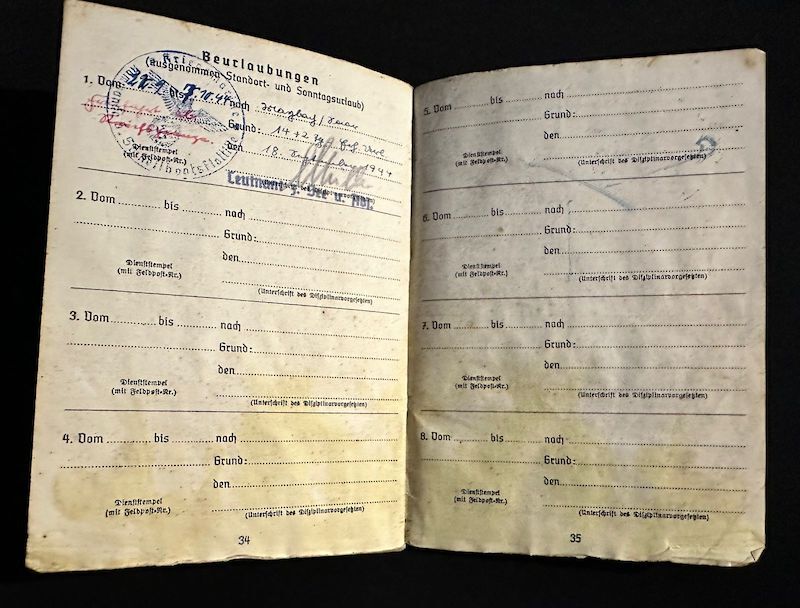 Beurlaubungen
(ausgenommen Standort- und Sonntagsurlaub)
1. Vom bis 7.10.44 nach
Grund: 14+2
den 18. 1944
Dienststempel
(mit Feldpost-Nr.)
Leutnant z. See u.
2. Vom bis nach
Grund:
den
Dienststempel
(mit Feldpost-Nr.)
(Unterschrift des Disziplinarvorgesetzten)
3. Vom bis nach
Grund:
den
Dienststempel
(mit Feldpost-Nr.)
(Unterschrift des Disziplinarvorgesetzten)
4. Vom bis nach
Grund:
den
Dienststempel
(mit Feldpost-Nr.)
(Unterschrift des Disziplinarvorgesetzten)
34
5. Vom bis nach
Grund:
den
Dienststempel
(mit Feldpost-Nr.)
(Unterschrift des Disziplinarvorgesetzten)
6. Vom bis nach
Grund:
den
Dienststempel
(mit Feldpost-Nr.)
(Unterschrift des Disziplinarvorgesetzten)
7. Vom bis nach
Grund:
den
Dienststempel
(mit Feldpost-Nr.)
(Unterschrift des Disziplinarvorgesetzten)
8. Vom bis nach
Grund:
den
Dienststempel
(mit Feldpost-Nr.)
(Unterschrift des Disziplinarvorgesetzten)
35